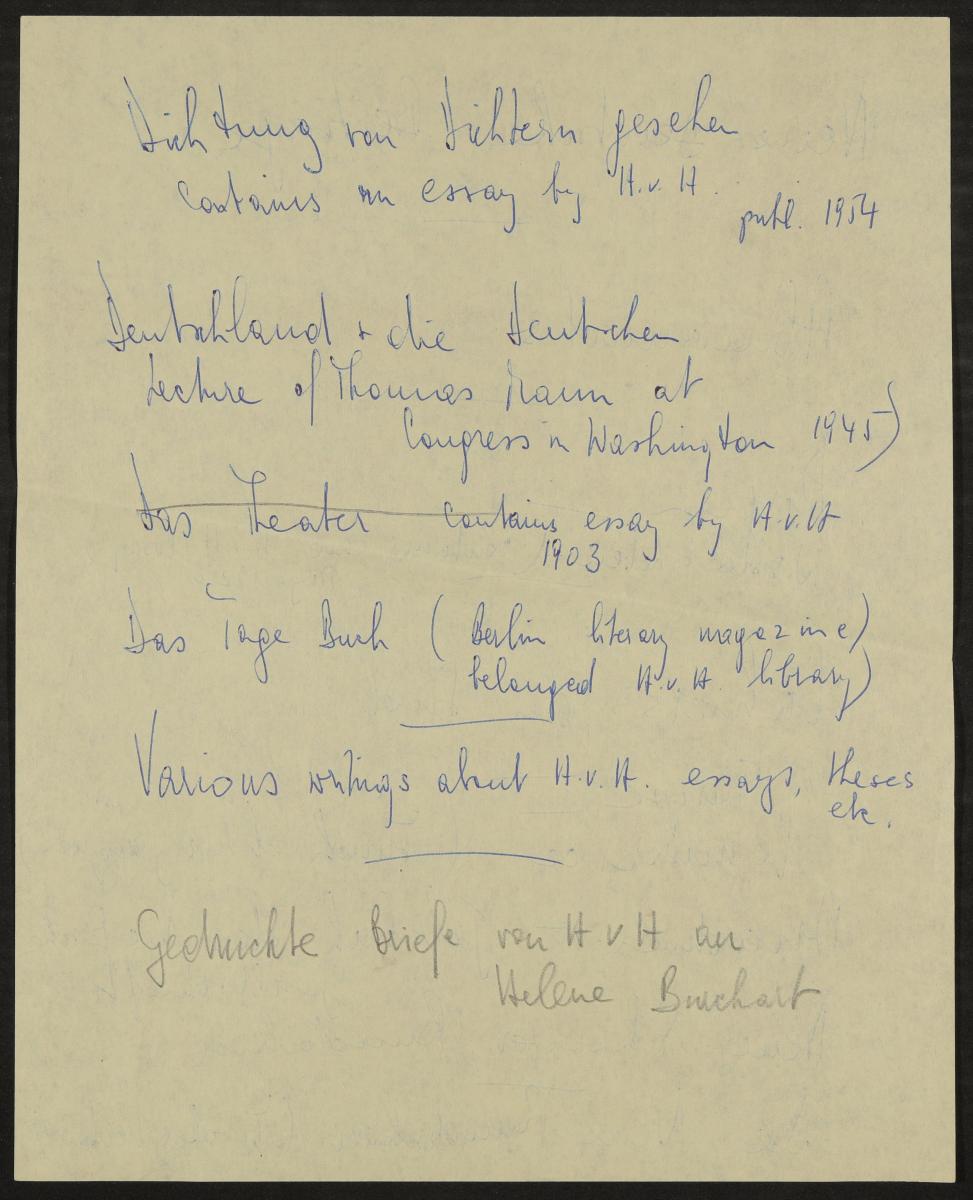 Dichtung von Dichtern gesehen
contains an essay by H.v.H.
publ. 1954
Deutschland + die Deutschen
Lecture of Thomas Mann at
Congress in Washington 1945)
Das Theater contains essay by H.v.H
1903
Das Tage Buch (Berlin literary magazine)
belonged H.v.H. library)
Various writings about H.v.H. essays, theses
etc.
Gedruckte Briefe von H v H an
Helene Burchart